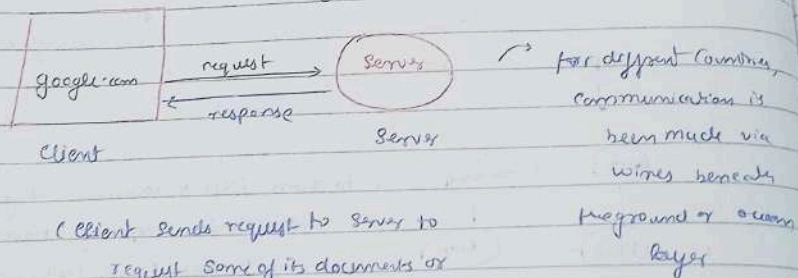 google.com
request
response
Server
Client
Server
for different Countries,
communication is
been made via
wires beneath
the ground or ocean
layer
(Client sends request to server to
request some of its documents or